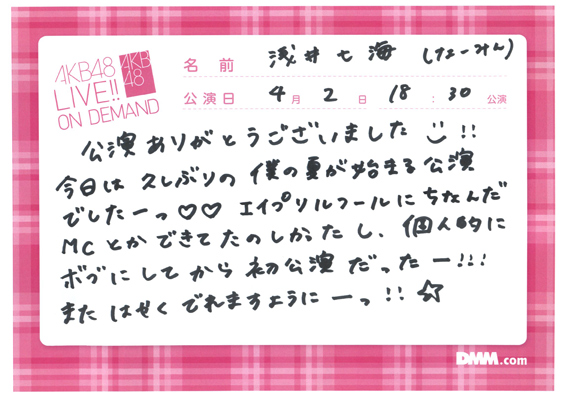 AKB48
LIVE!!
ON DEMAND
AKB
48
名前 浅井七海 (なーみん)
公演日 4月2日 18:30公演
公演ありがとうございました!!
今日は久しぶりの僕の夏が始まる公演
でしたーっ♡♡ エイプリルフールにちなんだ
MCとかできてたのしかったし、個人的に
ボブにしてから初公演だったー!!!
またはやくでれますようにーっ!!☆
DMM.com